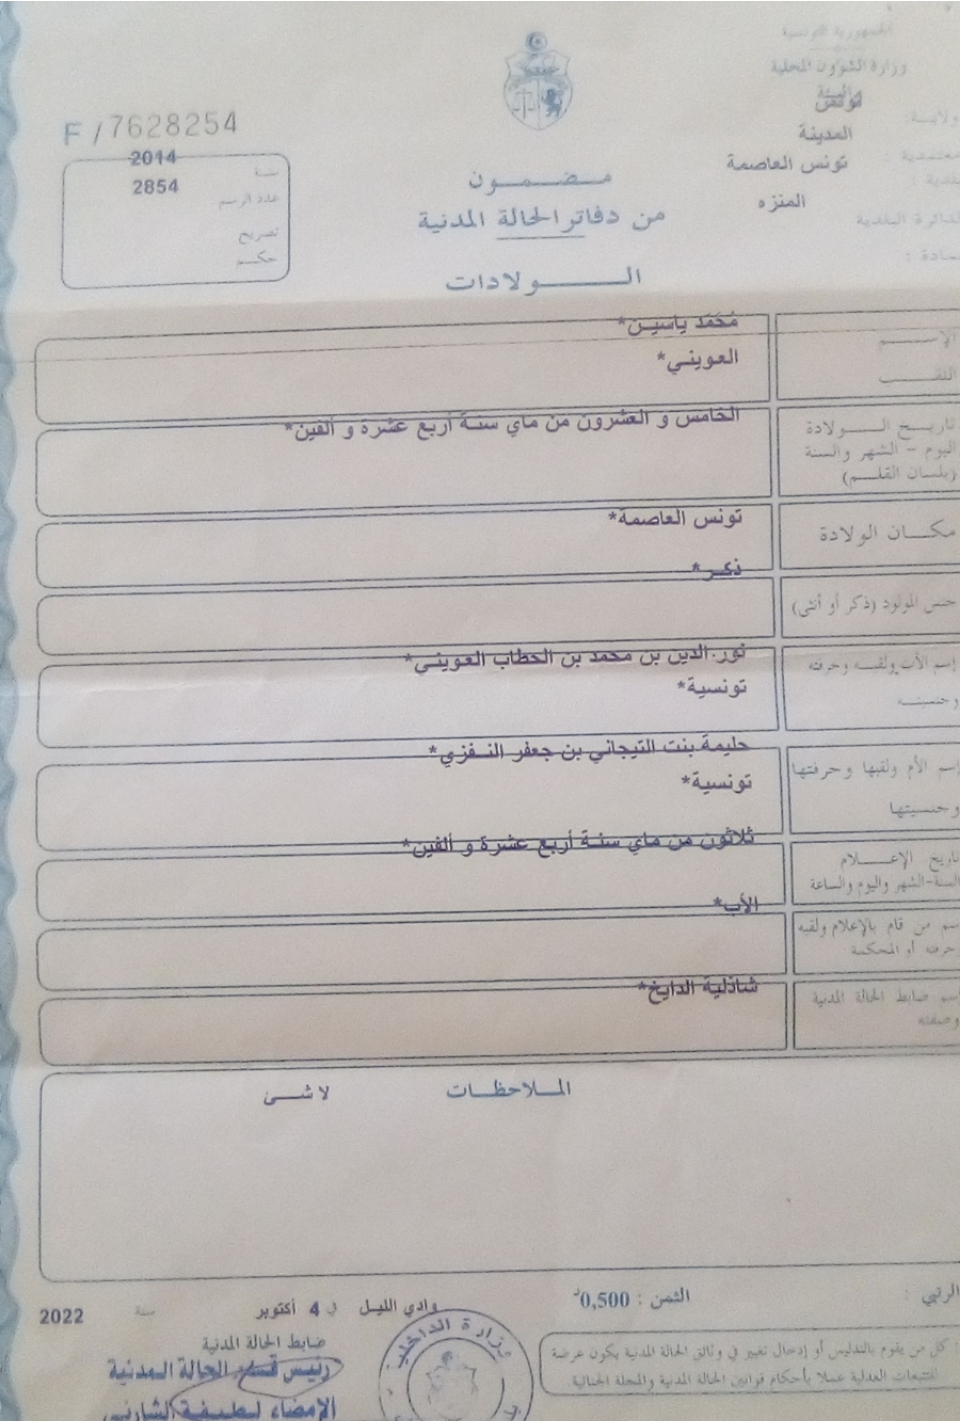 الجمهورية التونسية
وزارة الشؤون المحلية
والبيئة
ولاية: تونس
معتمدية : المدينة
بلدية : تونس العاصمة
الدائرة البلدية المنزه
عمادة :
F /7628254
سنة 2014
عدد الرسم 2854
تصريح
حكم
مضمون
من دفاتر الحالة المدنية
الولادات
الإسم محمد ياسين*
اللقب العويني*
تاريخ الولادة الخامس و العشرون من ماي سنة أربع عشرة و ألفين*
اليوم - الشهر والسنة
(بلسان القلم)
مكان الولادة تونس العاصمة*
جنس المولود (ذكر أو أنثى) ذكر*
إسم الأب ولقبه وحرفته نور الدين بن محمد بن الحطاب العويني*
وجنسيته تونسية*
إسم الأم ولقبها وحرفتها حليمة بنت التيجاني بن جعفر النفزي*
وجنسيتها تونسية*
تاريخ الإعلام ثلاثون من ماي سنة أربع عشرة و ألفين*
السنة-الشهر واليوم والساعة
إسم من قام بالإعلام ولقبه الأب*
وحرفته أو المحكمة
إسم ضابط الحالة المدنية شاذلية الدايخ*
وصفته
الملاحظات لا شئ
الثمن : 0,500د
وادي الليل في 4 أكتوبر سنة 2022
ضابط الحالة المدنية
رئيس قسم الحالة المدنية
الإمضاء لطيفة الشارني
وزارة الداخلية
: كل من يقوم بالتدليس أو إدخال تغيير في وثائق الحالة المدنية يكون عرضة
للتتبعات العدلية عملا بأحكام قوانين الحالة المدنية والمجلة الجنائية